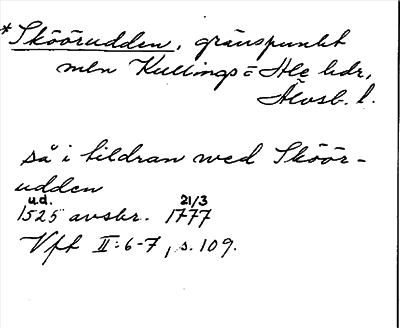 *Sköörudden, gränspunkt
mln Kullings o Ale hdr,
Älvsb. l.
så i tildran wed Sköör-
udden
u.d. 21/3
1525 avskr. 1777
Vft II:6-7, s. 109.